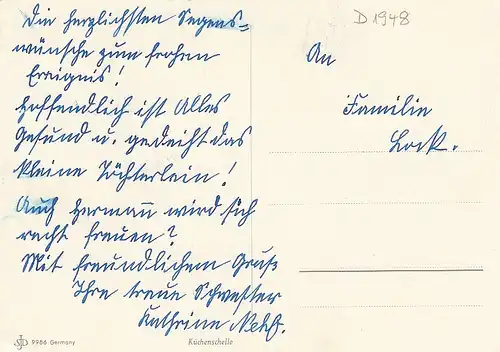 Die herzlichsten Segens=
wünsche zum frohen
Ereignis!
Hoffendlich ist Alles
Gesund u. gedeiht das
kleine Töchterlein!
Auch Hermann wird sich
recht freuen?
Mit freundlichem Gruß
Ihre treue Schwester
Kathrine
D 1948
An
Familie
Lock.
9986 Germany
Küchenschelle